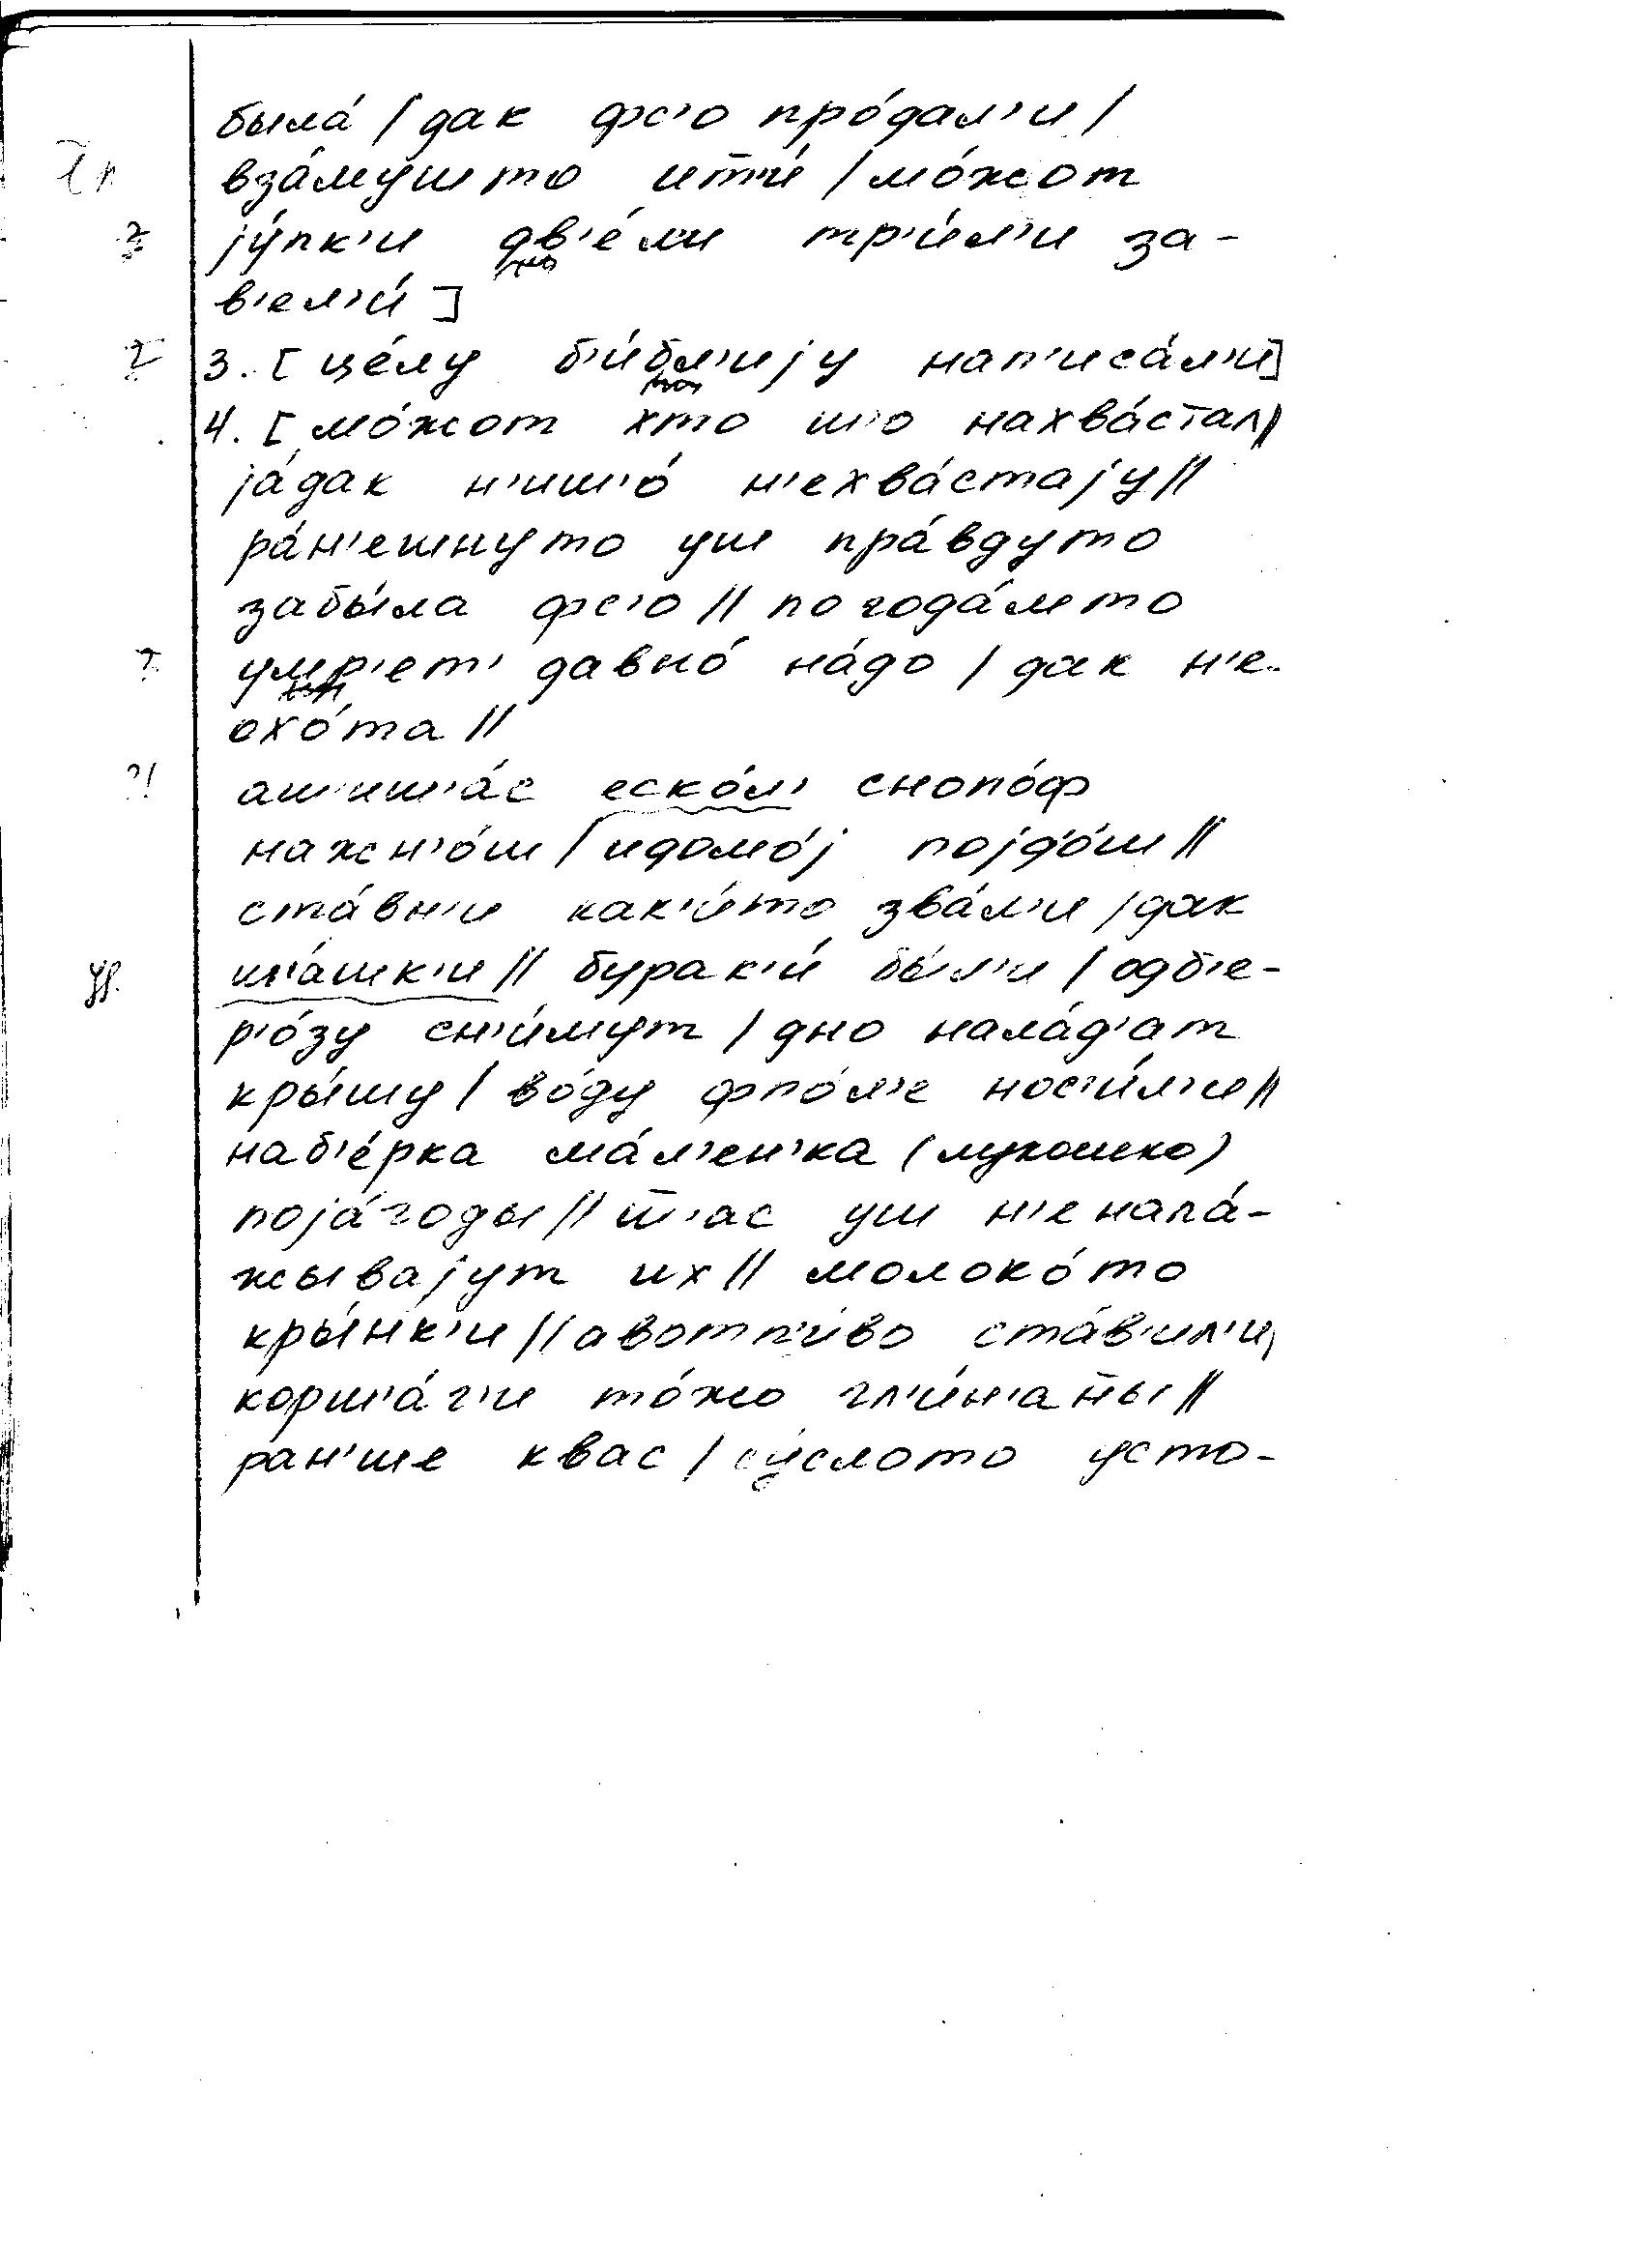 была́ / дак фс'о про́дал'и /
вза́мушто ит̄'и́ / мо́жот
jу́пк'и дв'е́л'и тр'и́л'и за-
в'ел'и́ ]
3. [ це́лу б'и́бл'иjу нап'иса́л'и]
4. [ мо́жот хто ш'о нахва́стал//
jа́дак н'иш'о́ н'ехва́стаjу //
ра́н'ешнуто уш пра́вдуто
забы́ла фс'о // погода́мто
умр'ет' давно́ на́до / дак н'е-
охо́та //
аш'иш'а́с еско́л' снопо́ф
нажн'о́ш / идомо́j поjд'о́ш //
ста́вн'и как'и́то зва́л'и / дак
ш'а́шк'и // бурак'и́ бы́л'и / одб'е-
р'о́зу сн'и́мут / дно нала́д'ат
кры́шу / во́ду фпо́л'е нос'и́л'и //
наб'е́рка ма́л'ен'ка (лукошко)
поjа́годы // т̄'ас уш н'енала́-
жываjут их // молоко́то
кры́нк'и // авотп'и́во ста́в'ил'и,
корш'а́г'и то́жо гл'и́н'ан̄ы //
ран'ше квас / су́слото усто-